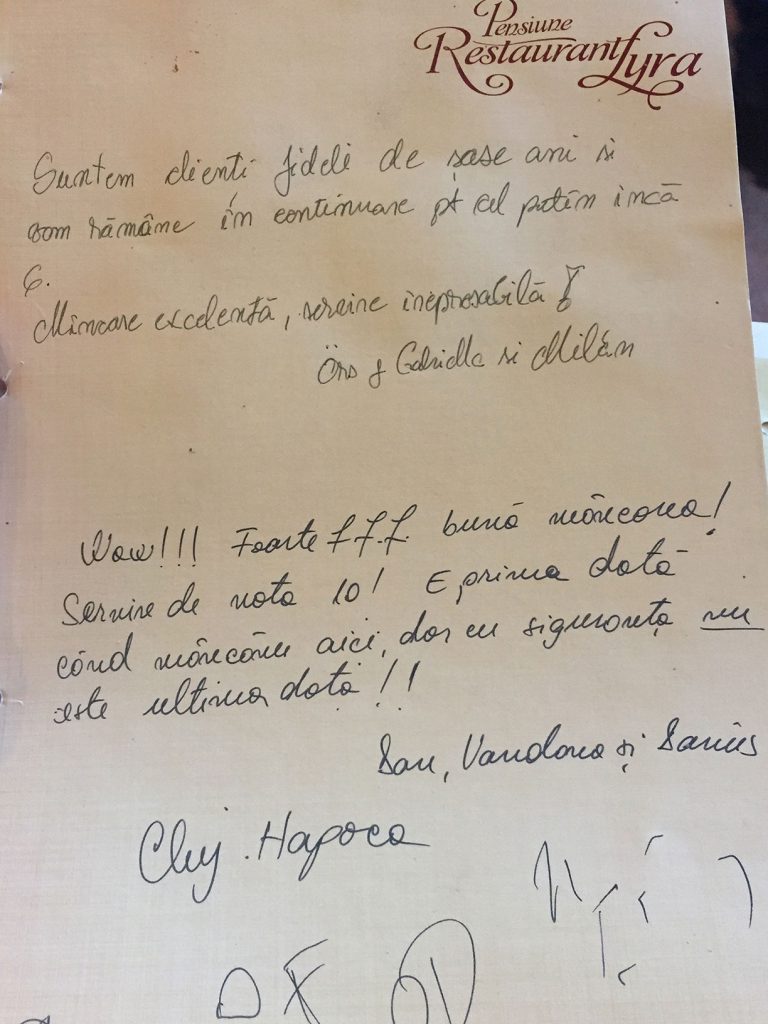 Pensiune
Restaurant Lyra
Suntem clienti fideli de șase ani si
vom rămâne în continuare pt cel putin încă
6.
Mîncare excelentă, servire ireprosabilă !
Örs & Gabriella si Milán
Wow!!! Foarte f.f.f. bună mâncarea!
Servire de nota 10! E prima dată
când mâncăm aici, dar cu siguranță nu
este ultima dată!!
Dan, Vandana și Darius
Cluj-Napoca